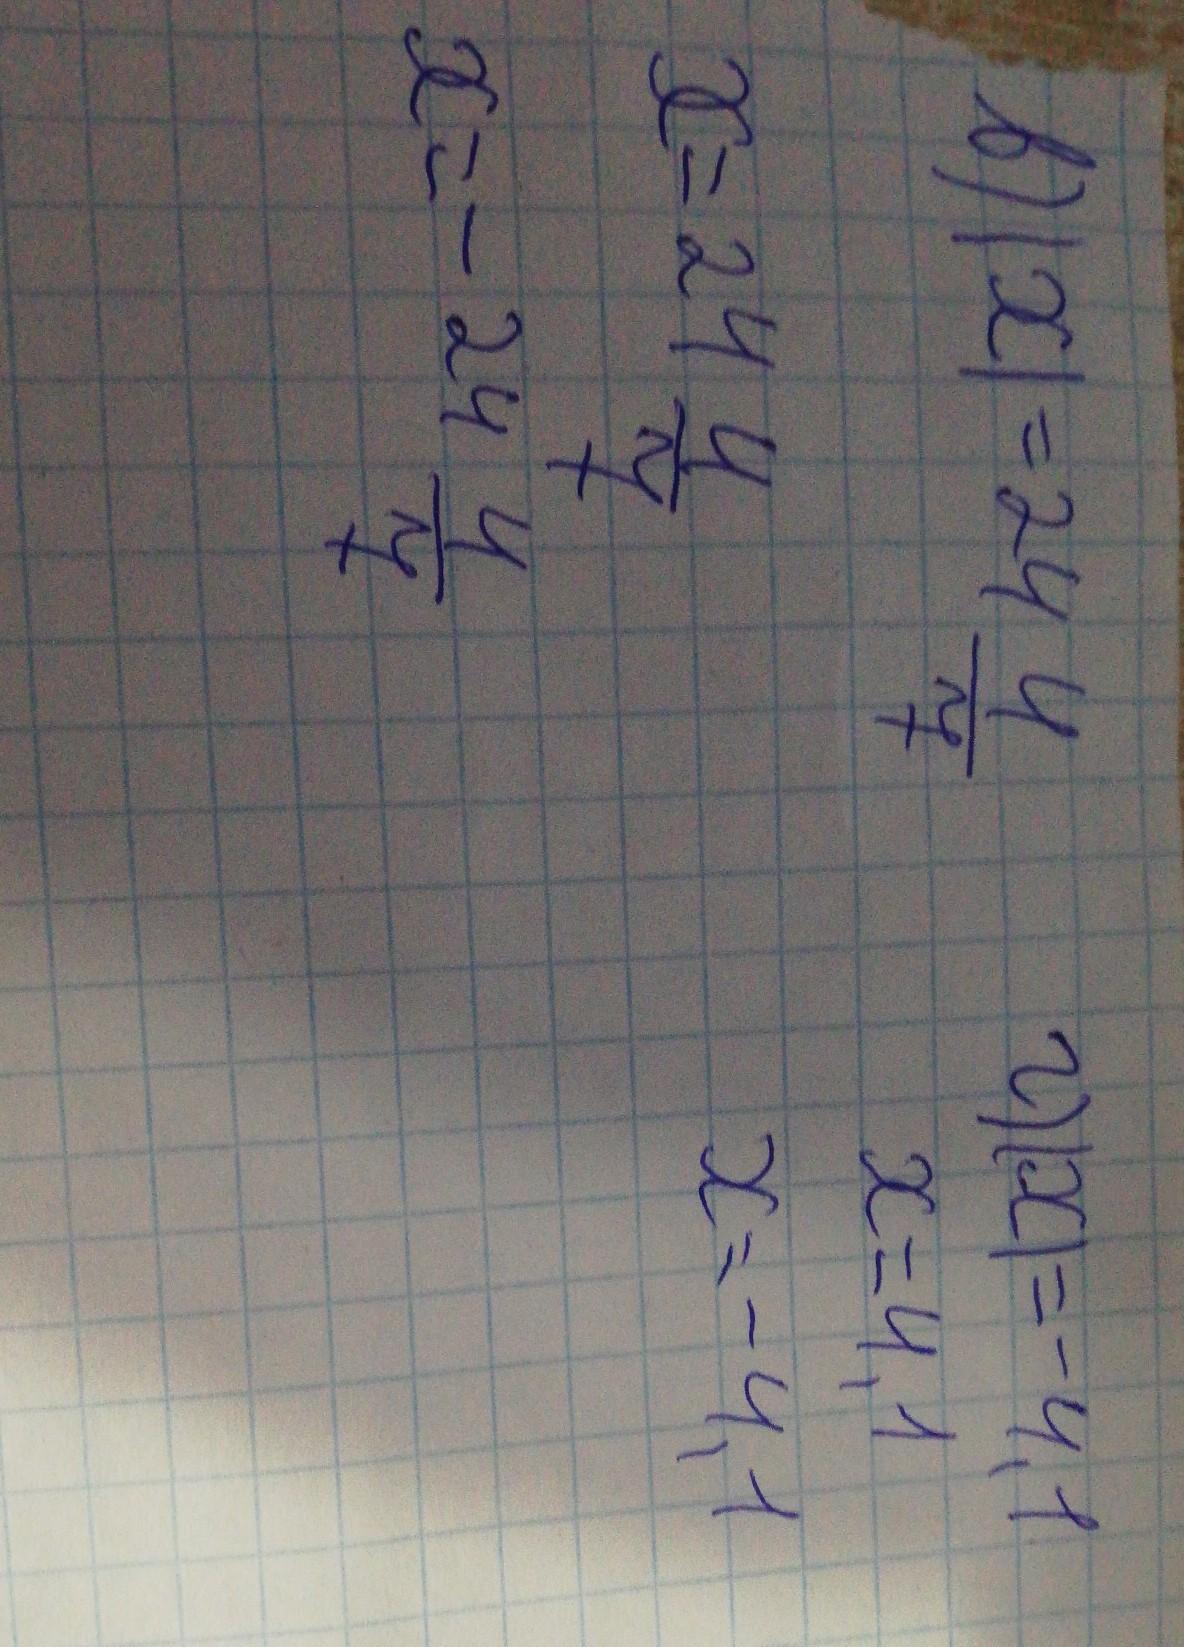 в) |x| = 24 4/7
x = 24 4/7
x = - 24 4/7
г) |x| = -4,1
x = 4,1
x = -4,1